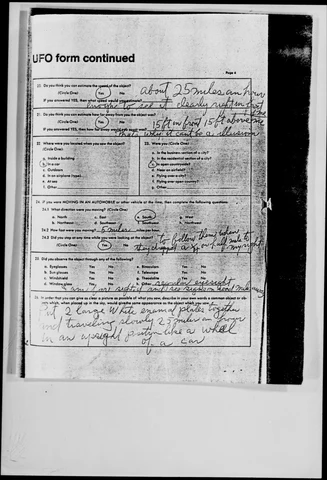 UFO form continued
Page 4
20. Do you think you can estimate the speed of the object?
about 25 miles an hour
(Circle One) Yes No
If you answered YES, then what speed would you estimate?
enough to see it clearly right in front
21. Do you think you can estimate how far away from you the object was?
(Circle One) Yes No
15 ft in front 15 ft above me
If you answered YES, then how far away would you say it was?
that why it cant be a illusion
22. Where were you located when you saw the object?
(Circle One):
a. Inside a building
b. In a car
c. Outdoors
d. In an airplane
e. At sea
f. Other
23. Were you (Circle One)
a. In the business section of a city?
b. In the residential section of a city?
c. In open countryside?
d. Near an airfield?
e. Flying over a city?
f. Flying over open country?
g. Other
24. If you were MOVING IN AN AUTOMOBILE or other vehicle at the time, then complete the following questions:
24.1 What direction were you moving? (Circle One)
a. North c. East e. South g. West
b. Northeast d. Southeast f. Southwest h. Northwest
24.2 How fast were you moving? 5 miles miles per hour.
24.3 Did you stop at any time while you were looking at the object?
(Circle One) Yes No
to follow them when
they stopped a half mile to
my right
25. Did you observe the object through any of the following?
a. Eyeglasses Yes No e. Binoculars Yes No
b. Sun glasses Yes No f. Telescope Yes No
c. Windshield Yes No g. Theodolite Yes No
d. Window glass Yes No h. Other regular eyesight
26. In order that you can give as clear a picture as possible of what you saw, describe in your own words a common object or objects which, when placed up in the sky, would give the same appearance as the object which you saw.
Put 2 large white enamel plates together
and traveling slowly 25 miles an hour
in an upright position like a wheel
of a car